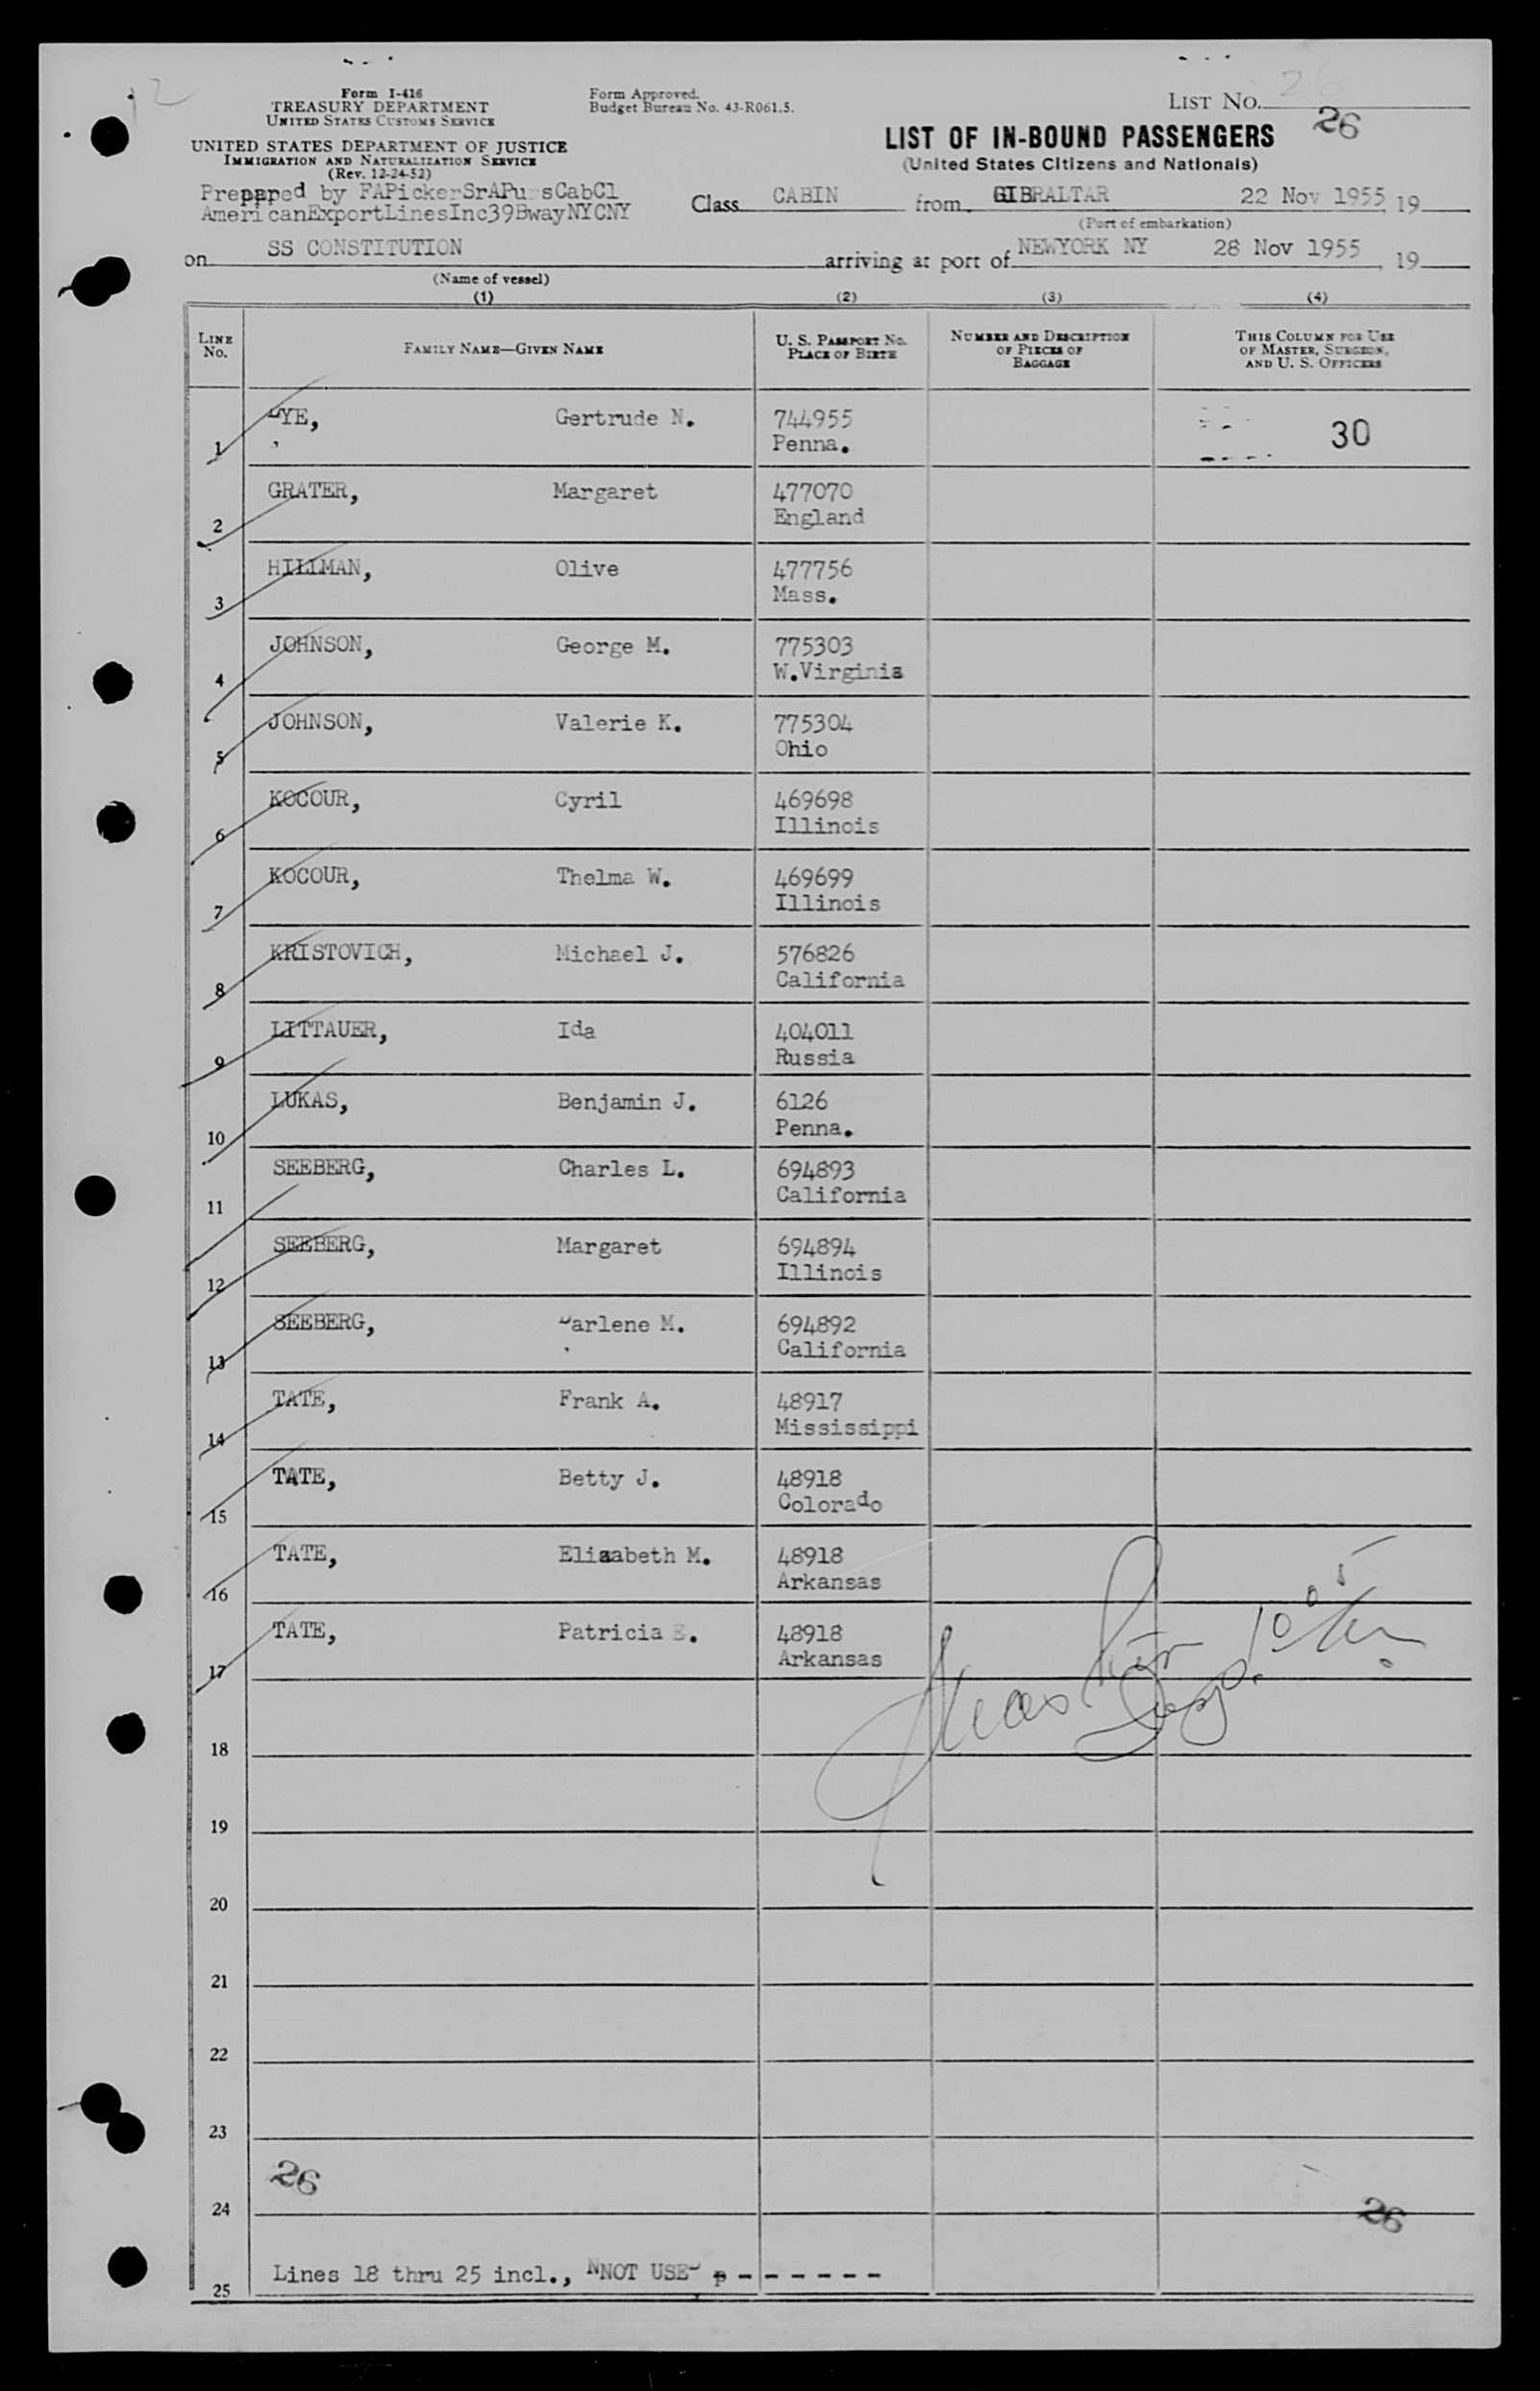 Form I-416
TREASURY DEPARTMENT
UNITED STATES CUSTOMS SERVICE
UNITED STATES DEPARTMENT OF JUSTICE
IMMIGRATION AND NATURALIZATION SERVICE
(Rev. 12-24-52)
Form Approved.
Budget Bureau No. 43-R061.5.
LIST NO. 26
26
LIST OF IN-BOUND PASSENGERS
(United States Citizens and Nationals)
Prepared by FAPickerSrAPursCabCl
AmericanExportLinesInc39BwayNYCNY
Class CABIN from GIBRALTAR 22 Nov 1955, 19
(Port of embarkation)
on SS CONSTITUTION arriving at port of NEWYORK NY 28 Nov 1955, 19
(Name of vessel)
(1) (2) (3) (4)
LINE NO. FAMILY NAME—GIVEN NAME U. S. PASSPORT NO. PLACE OF BIRTH NUMBER AND DESCRIPTION OF PIECES OF BAGGAGE THIS COLUMN FOR USE OF MASTER, SURGEON, AND U. S. OFFICERS
1 DYE, Gertrude N. 744955 30
Penna.
2 GRATER, Margaret 477070
England
3 HILLMAN, Olive 477756
Mass.
4 JOHNSON, George M. 775303
W.Virginia
5 JOHNSON, Valerie K. 775304
Ohio
6 KOCOUR, Cyril 469698
Illinois
7 KOCOUR, Thelma W. 469699
Illinois
8 KRISTOVICH, Michael J. 576826
California
9 LITTAUER, Ida 404011
Russia
10 LUKAS, Benjamin J. 6126
Penna.
11 SEEBERG, Charles L. 694893
California
12 SEEBERG, Margaret 694894
Illinois
13 SEEBERG, Darlene M. 694892
California
14 TATE, Frank A. 48917
Mississippi
15 TATE, Betty J. 48918
Colorado
16 TATE, Elizabeth M. 48918
Arkansas
17 TATE, Patricia E. 48918
Arkansas
18
19
20
21
22
23
26
24
26
25 Lines 18 thru 25 incl., NNOT USED - - - - - -